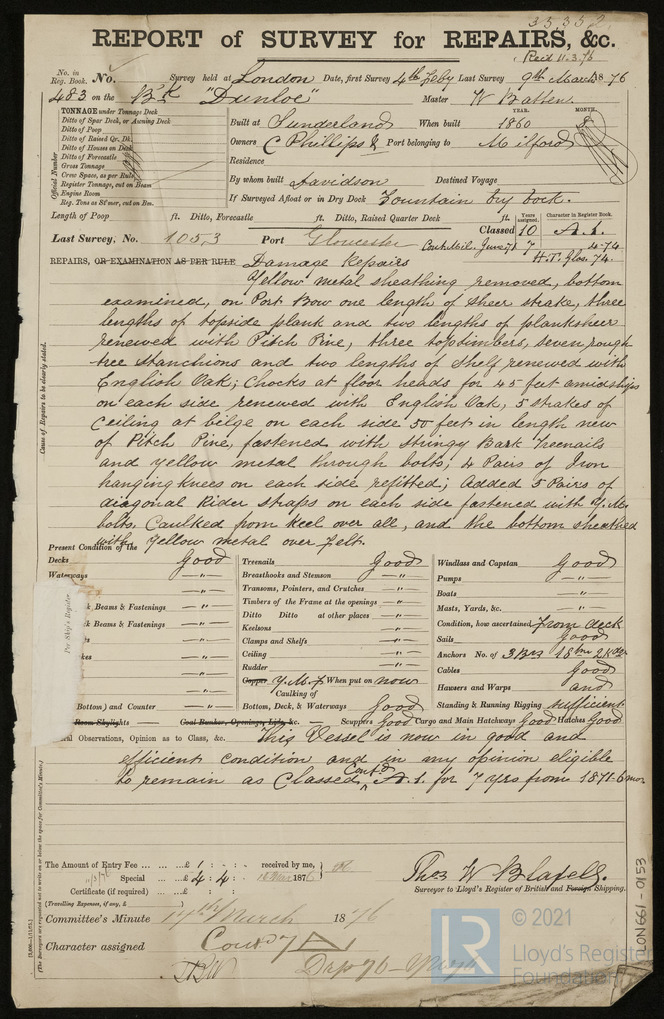 35352
REPORT of SURVEY for REPAIRS, &c.
Recd 11.3.76
No. in Reg. Book. No. Survey held at London Date, first Survey 4th Feby Last Survey 9th March 1876
483 on the Bk "Dunloe" Master W Batten
TONNAGE under Tonnage Deck
Ditto of Spar Deck, or Awning Deck
Ditto of Poop
Ditto of Raised Qr. Dk.
Ditto of Houses on Deck
Ditto of Forecastle
Gross Tonnage
Crew Space, as per Rule
Register Tonnage, cut on Beam
Engine Room
Reg. Tons as St'mer, cut on Bm.
Official Number
YEAR. MONTH.
Built at Sunderland When built 1860 8
Owners C Phillips & Port belonging to Milford
Residence
By whom built Davidson Destined Voyage
If Surveyed Afloat or in Dry Dock Fountain dry dock.
Length of Poop ft. Ditto, Forecastle ft. Ditto, Raised Quarter Deck ft.
Years assigned. Character in Register Book.
Classed 10 A.1.
Last Survey, No. 1053 Port Gloucester Cont. Mil. June 71 7 4.74
H.T. Glos. 74.
REPAIRS, OR EXAMINATION AS PER RULE Damage Repairs
Yellow metal sheathing removed, bottom
examined, on Port Bow one length of sheer strake, three
lengths of topside plank and two lengths of planksheer
renewed with Pitch Pine, three toptimbers, seven rough
tree stanchions and two lengths of shelf renewed with
English Oak; chocks at floor heads for 45 feet amidships
on each side renewed with English Oak, 5 strakes of
ceiling at bilge on each side 50 feet in length new
of Pitch Pine, fastened with Stringy Bark Treenails
and yellow metal through bolts; 4 Pairs of Iron
hanging knees on each side refitted; Added 5 Pairs of
diagonal Rider straps on each side fastened with Y.M.
bolts, Caulked from keel over all, and the bottom sheathed
with Yellow metal over Felt.
Cause of Repairs to be clearly stated.
Present Condition of the
Decks Good
Waterways "
k Beams & Fastenings "
k Beams & Fastenings "
Per Ship's Register
Bottom) and Counter "
Room Skylights — Coal Bunker, Openings, Lids, &c. — Scuppers Good Cargo and Main Hatchways Good Hatches Good
Treenails Good
Breasthooks and Stemson "
Transoms, Pointers, and Crutches "
Timbers of the Frame at the openings "
Ditto Ditto at other places "
Keelsons "
Clamps and Shelfs "
Ceiling "
Rudder "
Copper Y.M.F When put on now
Caulking of
Bottom, Deck, & Waterways Good
Windlass and Capstan Good
Pumps "
Boats "
Masts, Yards, &c. "
Condition, how ascertained from deck
Sails Good
Anchors No. of 3 Brs 1 Stm 2 Kdg.
Cables Good
Hawsers and Warps and
Standing & Running Rigging sufficient
ral Observations, Opinion as to Class, &c. This Vessel is now in good and
efficient condition and in my opinion eligible
to remain as Classed Contd A.1. for 7 yrs from 1871.6mos
The Amount of Entry Fee £ 1 : - : - received by me,
11/3/76 Special £ 4 : 4 : - 187
Certificate (if required) £ : :
(Travelling Expenses, if any, £ )
Thos W Blabell.
Surveyor to Lloyd's Register of British and Foreign Shipping.
Committee's Minute 17th March 1876
Character assigned Contd 7
LON661-0153
LR
© 2021
Lloyd's Register
Foundation